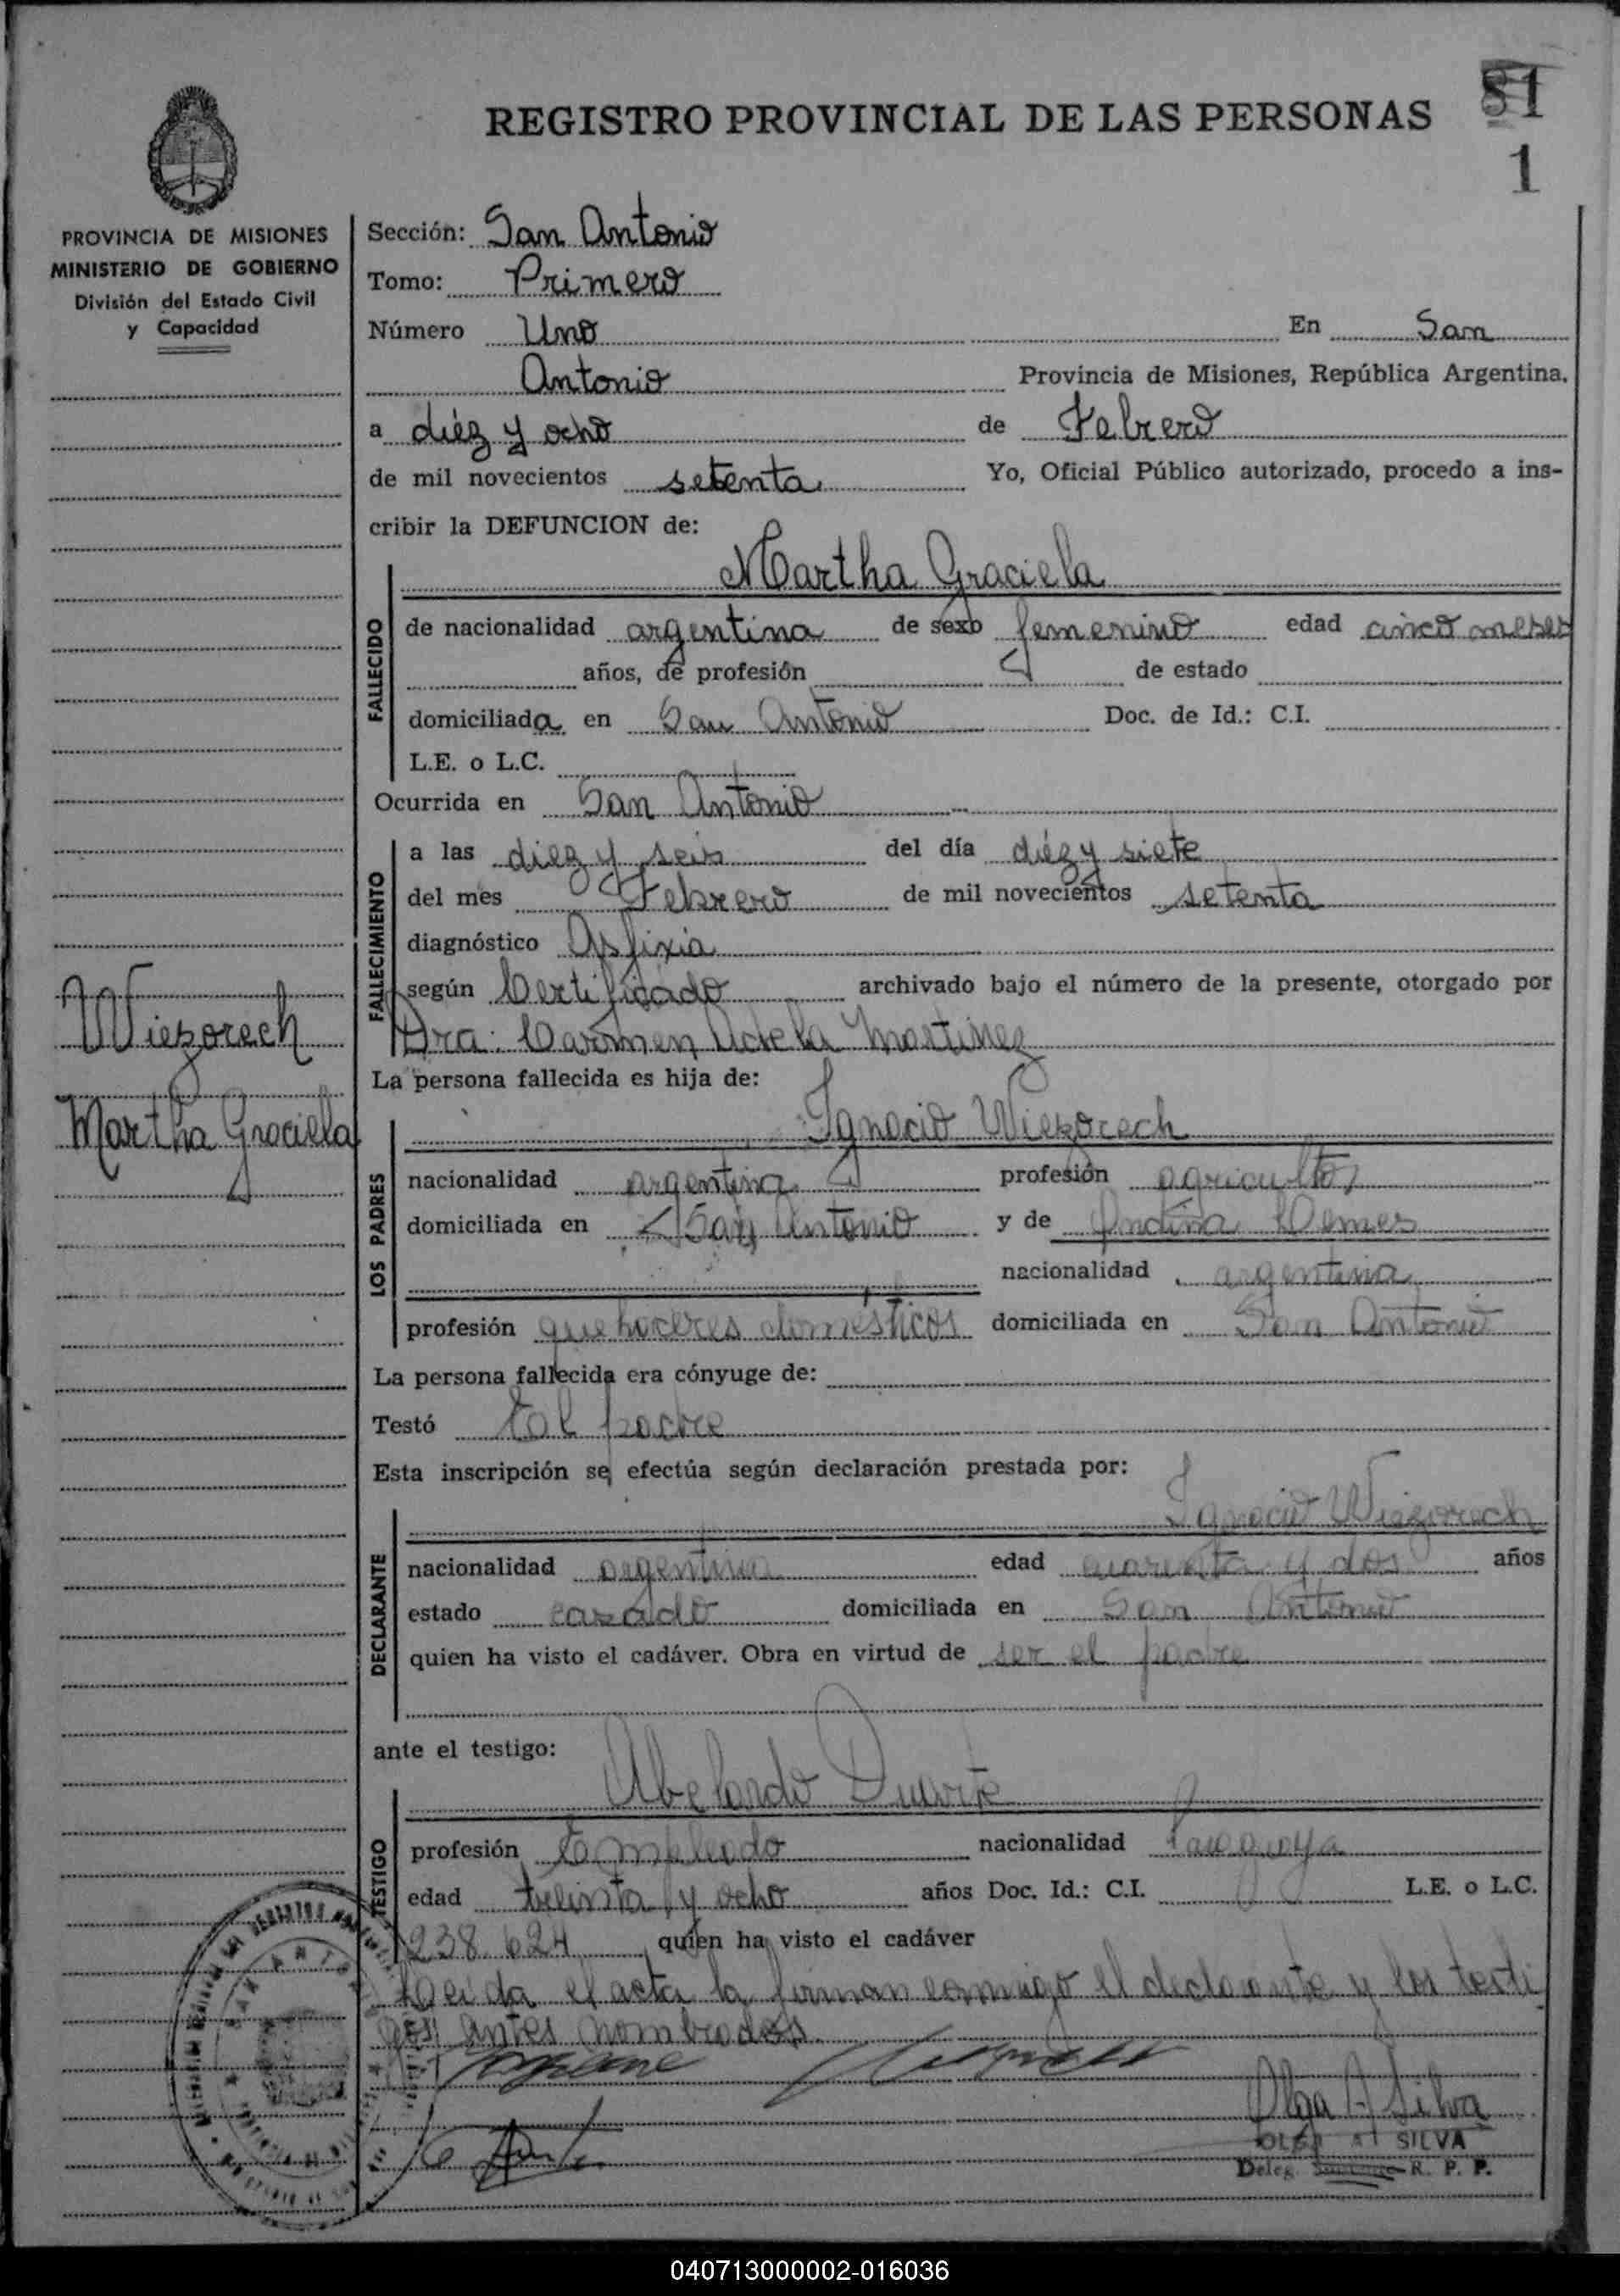 81
REGISTRO PROVINCIAL DE LAS PERSONAS
1
PROVINCIA DE MISIONES
MINISTERIO DE GOBIERNO
División del Estado Civil
y Capacidad
Wiezorech
Martha Graciela
Sección: San Antonio
Tomo: Primero
Número Uno En San
Antonio Provincia de Misiones, República Argentina.
a diéz y ocho de Febrero
de mil novecientos setenta Yo, Oficial Público autorizado, procedo a ins-
cribir la DEFUNCION de:
Martha Graciela
FALLECIDO
de nacionalidad argentina de sexo femenino edad cinco meses
años, de profesión de estado
domiciliada en San Antonio Doc. de Id.: C.I.
L.E. o L.C.
Ocurrida en San Antonio
FALLECIMIENTO
a las diez y seis del día diéz y siete
del mes Febrero de mil novecientos setenta
diagnóstico Asfixia
según Certificado archivado bajo el número de la presente, otorgado por
Dra: Carmen Adela Martinez
La persona fallecida es hija de:
Ignacio Wiezorech
LOS PADRES
nacionalidad argentina profesión agricultor
domiciliada en San Antonio y de Andina
nacionalidad argentina
profesión quehaceres domésticos domiciliada en San Antonio
La persona fallecida era cónyuge de:
Testó tal padre
Esta inscripción se efectúa según declaración prestada por:
Ignacio Wiezorech
DECLARANTE
nacionalidad argentina edad cuarenta y dos años
estado casado domiciliada en San Antonio
quien ha visto el cadáver. Obra en virtud de ser el padre
ante el testigo:
Abelardo Duarte
TESTIGO
profesión Empleado nacionalidad Paraguaya
edad treinta y ocho años Doc. Id.: C.I. L.E. o L.C.
238.624 quien ha visto el cadáver
Leida el acta la firman conmigo el declarante y los testi
gos antes nombrados.
Olga A Silva
OLGA A SILVA
Deleg. R. P. P.
040713000002-016036